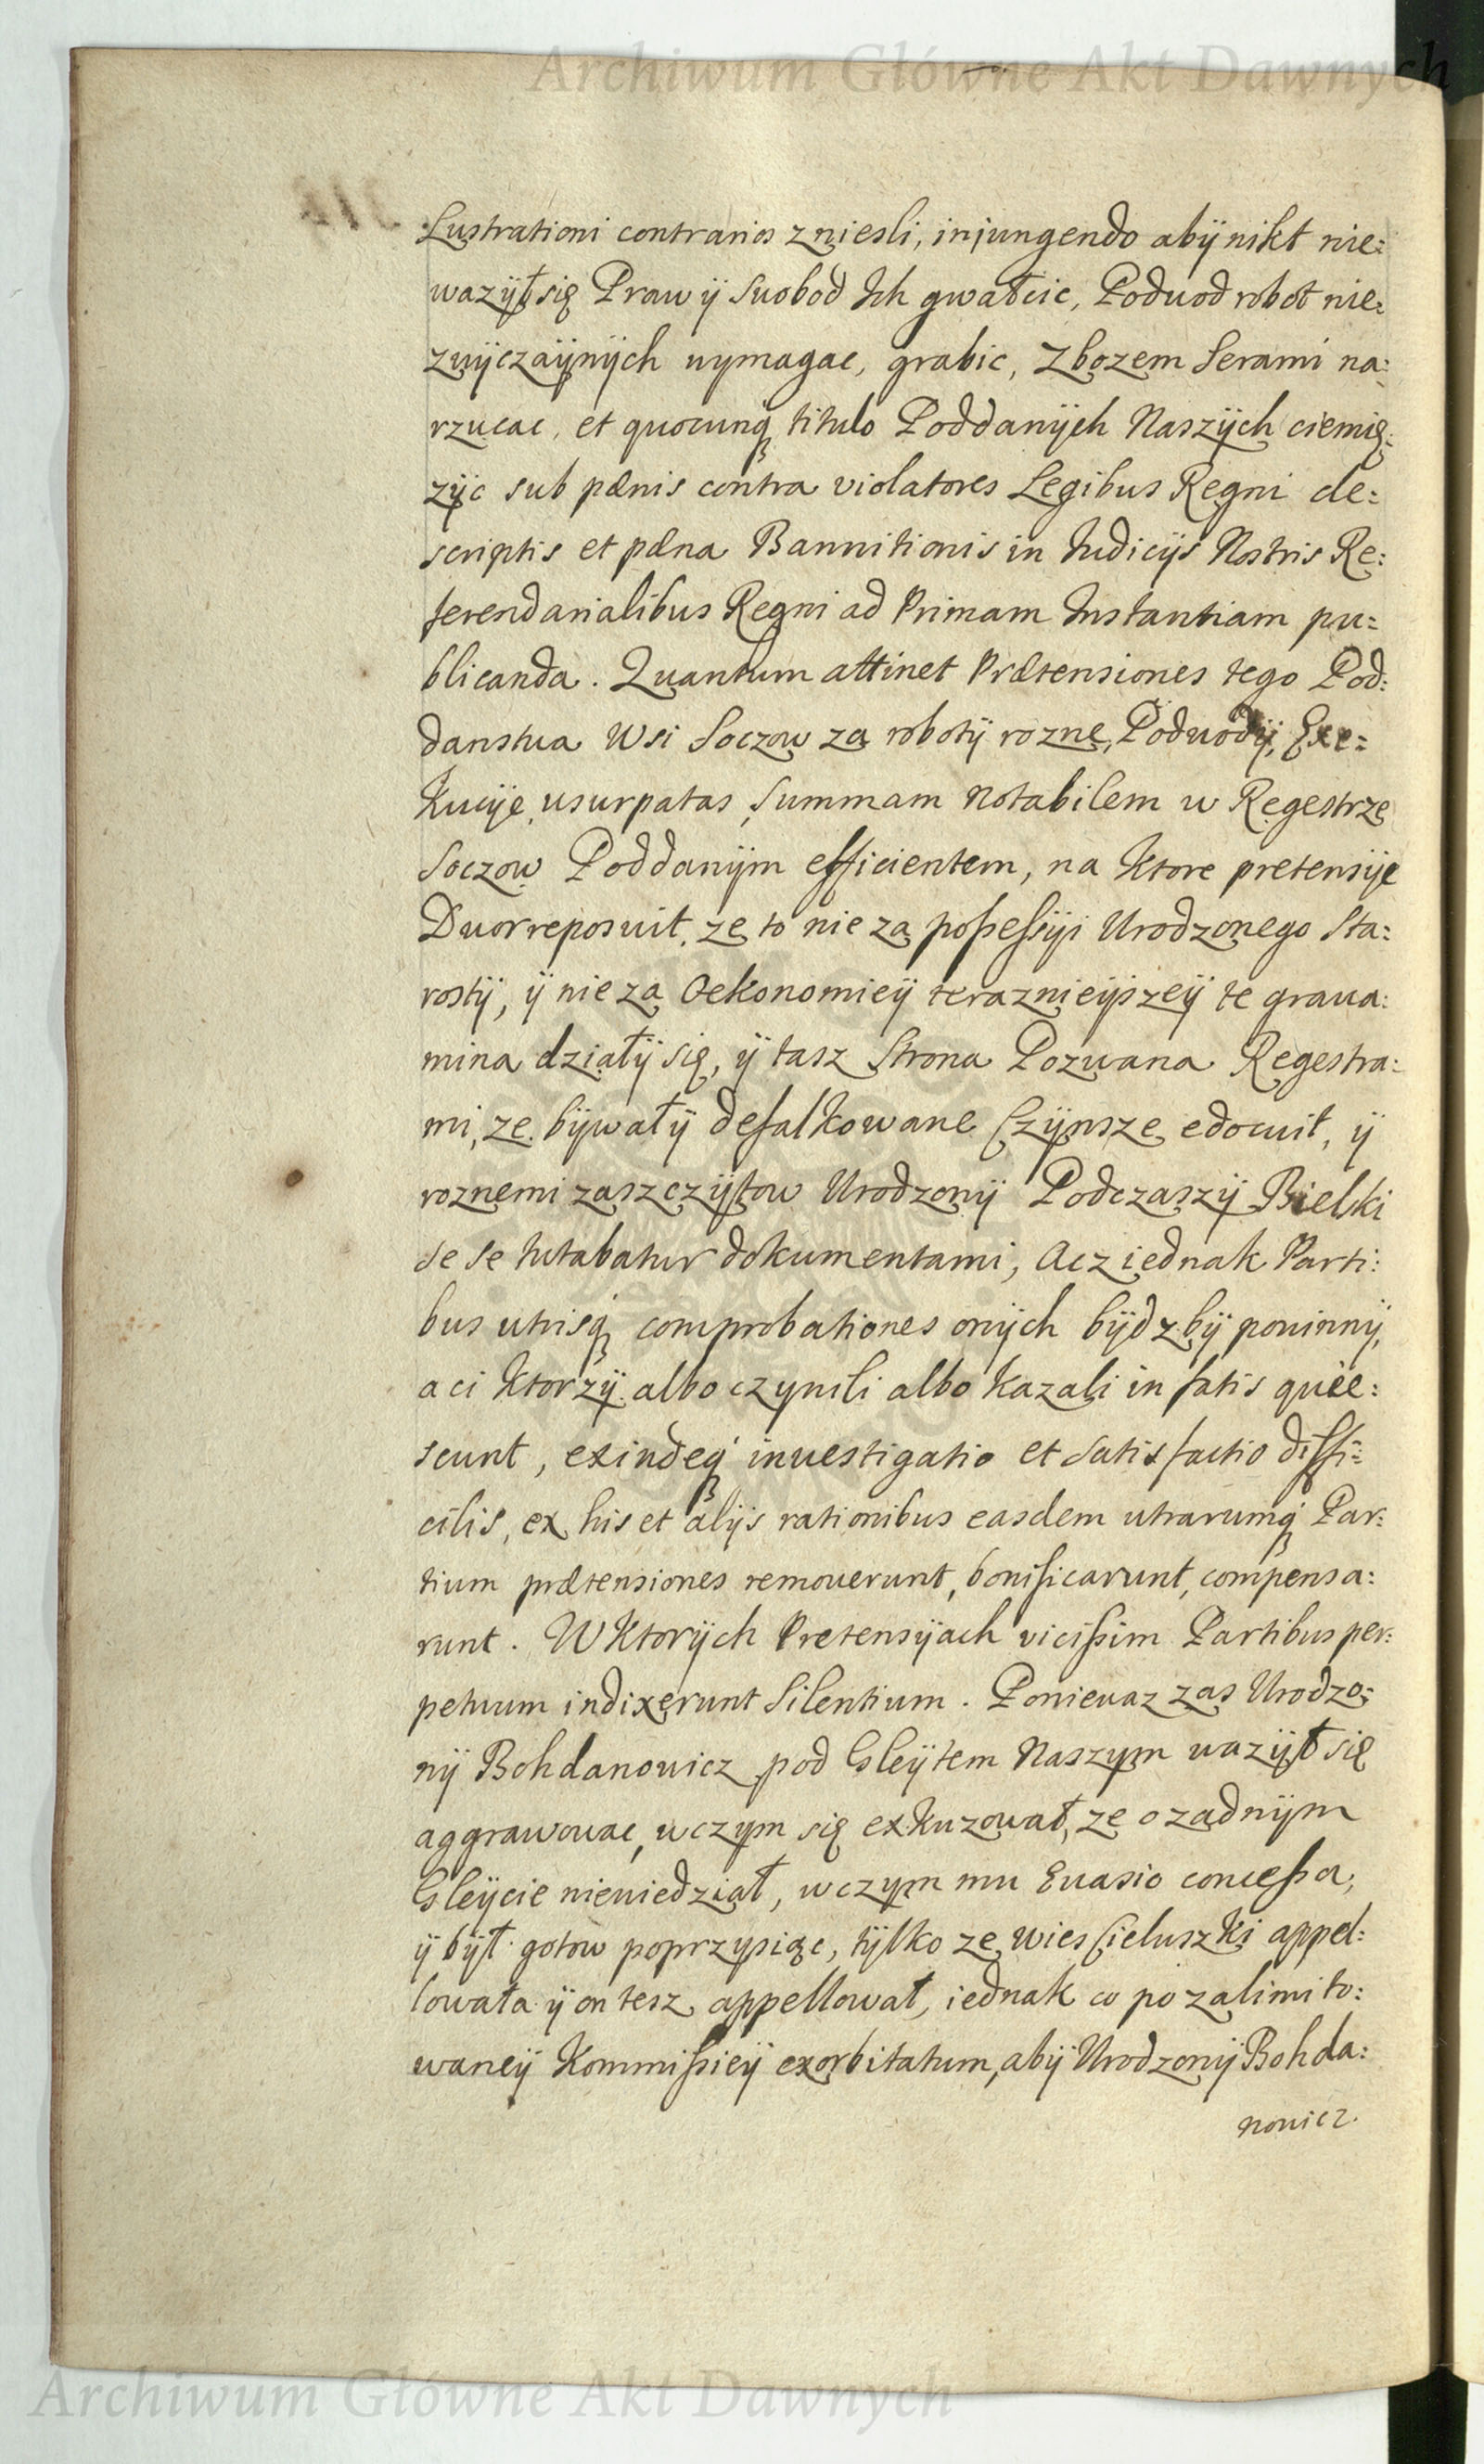 Archiwum Główne Akt Dawnych
Lustrationi contrarios zniesli, injungendo abÿ nikt nie=
wazÿł się Praw ÿ Swobod Ich gwałcic, Podwod robot nie=
zwÿczaÿnÿch wymagac, grabic, Zbozem Serami na=
rzucac, et quocunq́ titulo Poddanÿch Naszÿch ciemię=
zÿc sub pænis contra violatores Legibus Regni de=
scriptis et pæna Bannitionis in Judicÿs Nostris Re=
ferendarialibus Regni ad Primam Instantiam pu=
blicanda. Quantum attinet Prætensiones tego Pod=
danstwa Wsi Soczow za robotÿ rozne, Podwodÿ, Exe=
kucÿe usurpatas, Summam Notabilem w Regestrze
Soczow Poddanÿm efficientem, na ktore pretensÿe
Dwor reposuit, ze to nie za possessÿi Urodzonego Sta=
rostÿ, ÿ nie za Oekonomieÿ terazniejszeÿ te grava=
mina działÿ się, ÿ tasz Strona Pozwana Regestra=
mi, ze bÿwałÿ defalkowane Czÿnsze edocuit, ÿ
roznemi zaszczÿtow Urodzonÿ Podczaszÿ Bielski
se se tutabatur dokumentami, Acz iednak Parti=
bus utrisq́ comprobationes onÿch bÿdzbÿ powinnÿ,
a ci ktorzÿ albo czynili albo kazali in fatis quie=
scunt, exindeq́ investigatio et satisfactio diffi=
cilis, ex his et alÿs rationibus easdem utrarumq́ Par=
tium prætensiones removerunt, bonificarunt, compensa=
runt. W ktorÿch Pretensÿach vicissim Partibus per=
petuum indixerunt Silentium. Poniewaz zas Urodzo=
nÿ Bohdanowicz pod Gleÿtem Naszym wazÿł się
aggrawowac, w czym się exkuzował, ze o zadnÿm
Gleÿcie niewiedział, w czym mu Evasio concessa,
ÿ bÿł gotow poprzysiąc, tÿlko ze wies Cieluszki appel=
lowała ÿ on tesz appellował, iednak co po zalimito=
waneÿ Kommissieÿ exorbitatum, abÿ Urodzonÿ Bohda=
nowicz.
Archiwum Główne Akt Dawnych